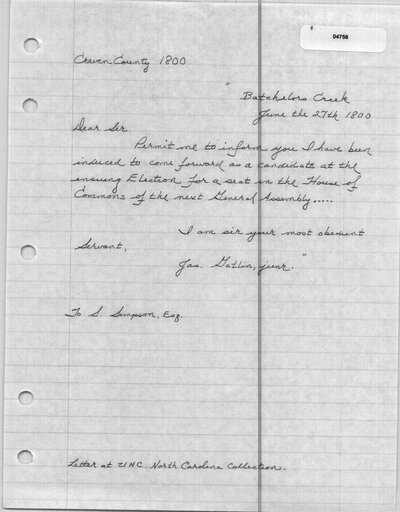 04756
Craven County 1800
" Batchelors Creek
June the 27th 1800
Dear Sir
Permit me to inform you I have been
induced to come forward as a candidate at the
ensuing Election for a seat in the House of
Commons of the next General Assembly.....
I am sir your most obedient
Servant,
Jas. Gatlin, junr. "
To S. Simpson, Esq.
Letter at UNC North Carolina Collection.